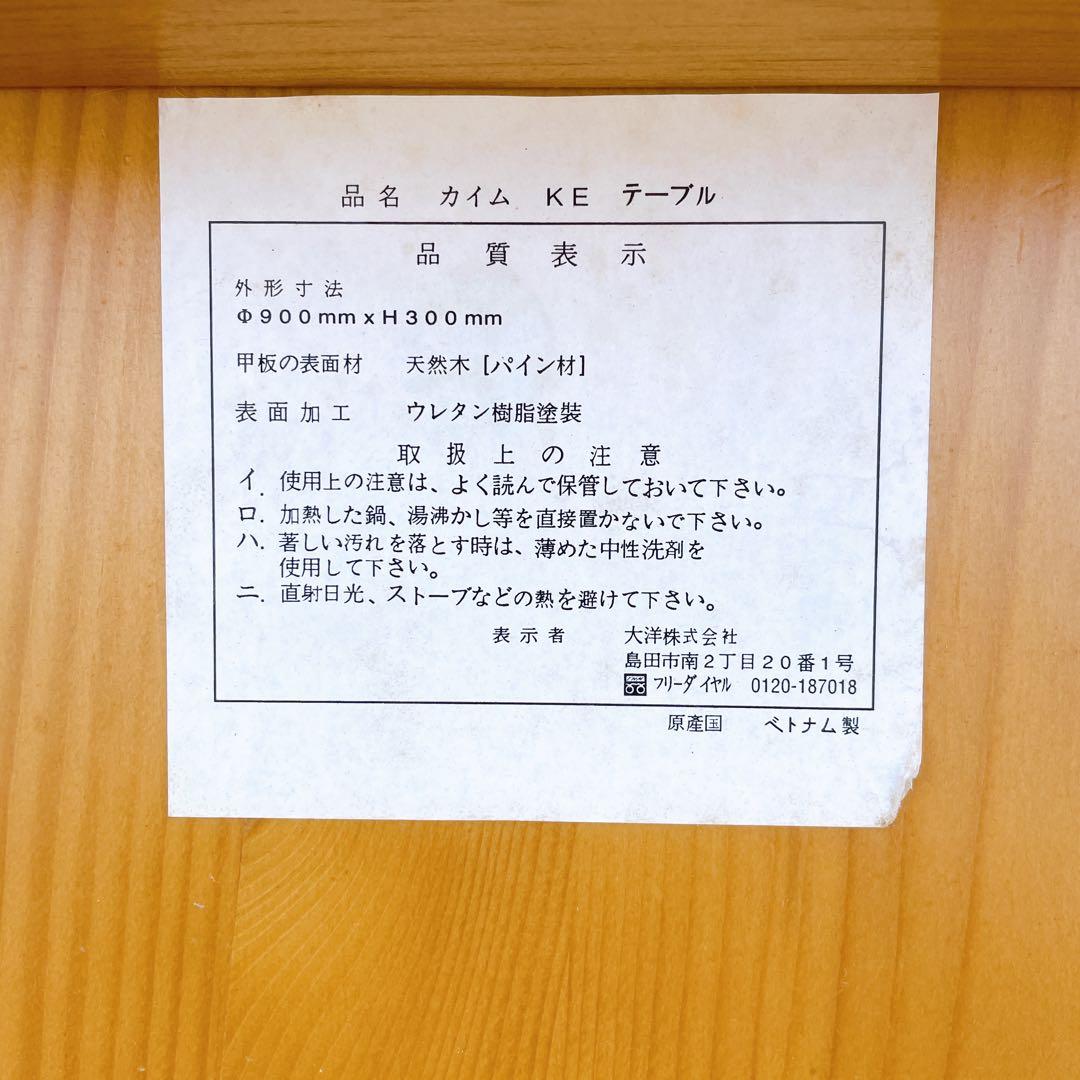 品名 カイム KE テーブル
品質表示
外形寸法
Φ900mm x H300mm
甲板の表面材 天然木 [パイン材]
表面加工 ウレタン樹脂塗装
取扱上の注意
イ. 使用上の注意は、よく読んで保管しておいて下さい。
ロ. 加熱した鍋、湯沸かし等を直接置かないで下さい。
ハ. 著しい汚れを落とす時は、薄めた中性洗剤を
使用して下さい。
ニ. 直射日光、ストーブなどの熱を避けて下さい。
表示者 大洋株式会社
島田市南2丁目20番1号
フリーダイヤル 0120-187018
原産国 ベトナム製